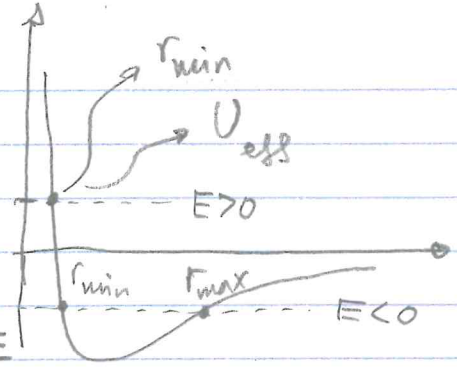 r min
U eff
E>0
r min r max
E<0
E